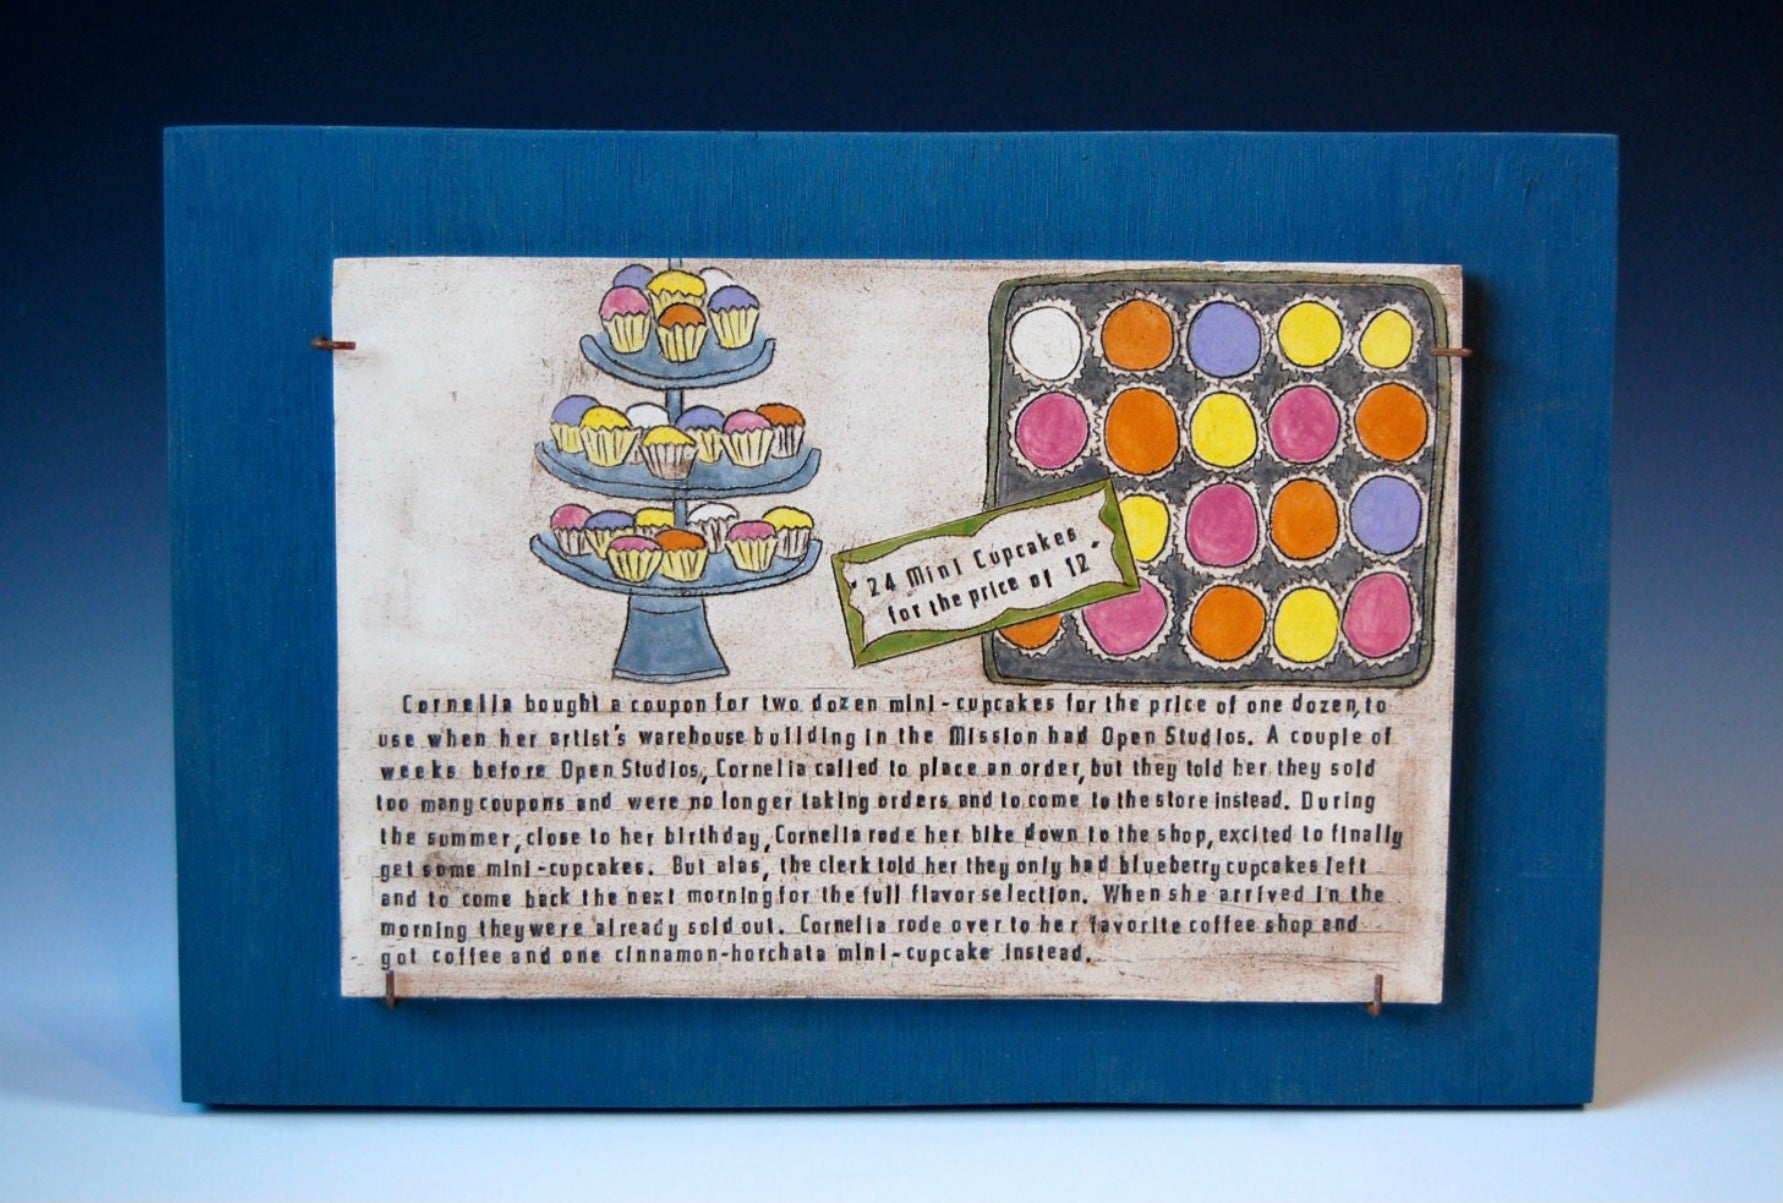 "24 Mini Cupcakes
for the price of 12"
Cornelia bought a coupon for two dozen mini-cupcakes for the price of one dozen, to
use when her artist's warehouse building in the Mission had Open Studios. A couple of
weeks before Open Studios, Cornelia called to place an order, but they told her they sold
too many coupons and were no longer taking orders and to come to the store instead. During
the summer, close to her birthday, Cornelia rode her bike down to the shop, excited to finally
get some mini-cupcakes. But alas, the clerk told her they only had blueberry cupcakes left
and to come back the next morning for the full flavor selection. When she arrived in the
morning they were already sold out. Cornelia rode over to her favorite coffee shop and
got coffee and one cinnamon-horchata mini-cupcake instead.